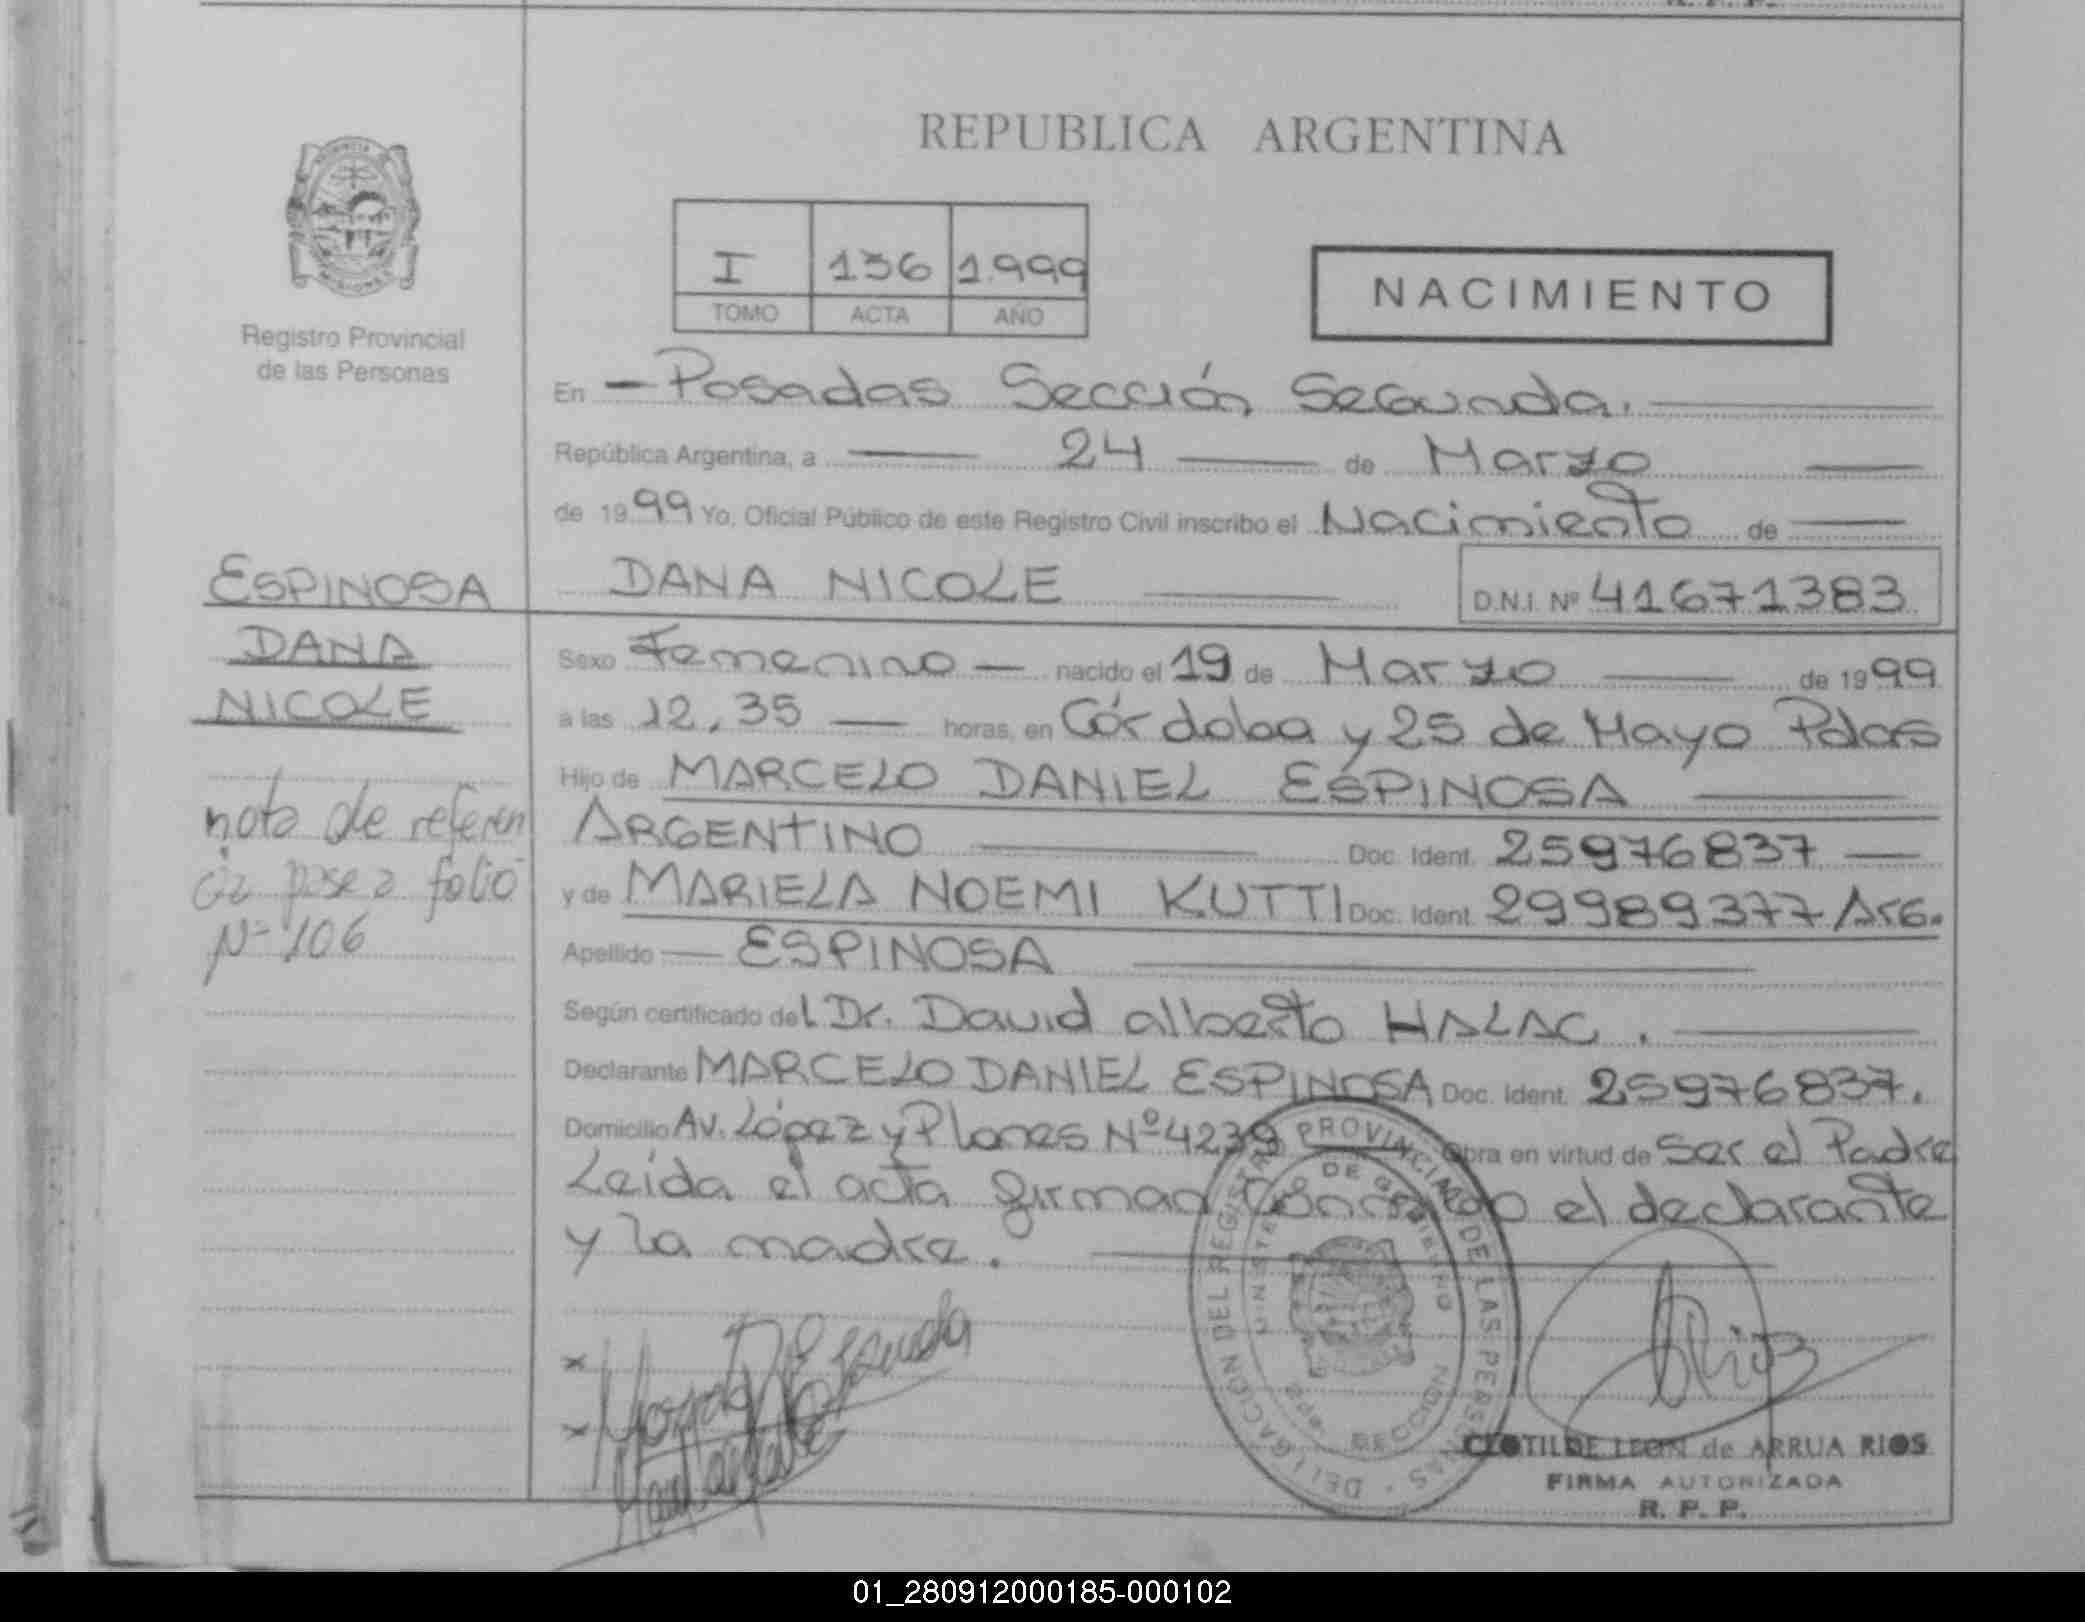 REPUBLICA ARGENTINA
I 136 1.999
TOMO ACTA AÑO
NACIMIENTO
Registro Provincial
de las Personas
En Posadas Sección Segunda.
República Argentina, a 24 de Marzo
de 1999 Yo, Oficial Público de este Registro Civil inscribo el Nacimiento de
DANA NICOLE D.N.I. Nº 41671383
ESPINOSA
DANA
NICOLE
nota de referen
cia pase a folio
Nº 106
Sexo Femenino nacido el 19 de Marzo de 1999
a las 12,35 horas, en Córdoba y 25 de Mayo Pdas
Hijo de MARCELO DANIEL ESPINOSA
ARGENTINO Doc. Ident. 25976837
y de MARIELA NOEMI KUTTI Doc. Ident. 29989377 Arg.
Apellido ESPINOSA
Según certificado del Dr. David alberto HALAC.
Declarante MARCELO DANIEL ESPINOSA Doc. Ident. 25976837.
Domicilio Av. López y Planes Nº 4239 Obra en virtud de Ser el Padre
Leída el acta firman Conmigo el declarante
y la madre.
DELEGACIÓN DEL REGISTRO PROVINCIAL DE LAS PERSONAS
MINISTERIO DE GOBIERNO
SECCION
CLOTILDE LEON de ARRUA RIOS
FIRMA AUTORIZADA
R. P. P.
01_280912000185-000102